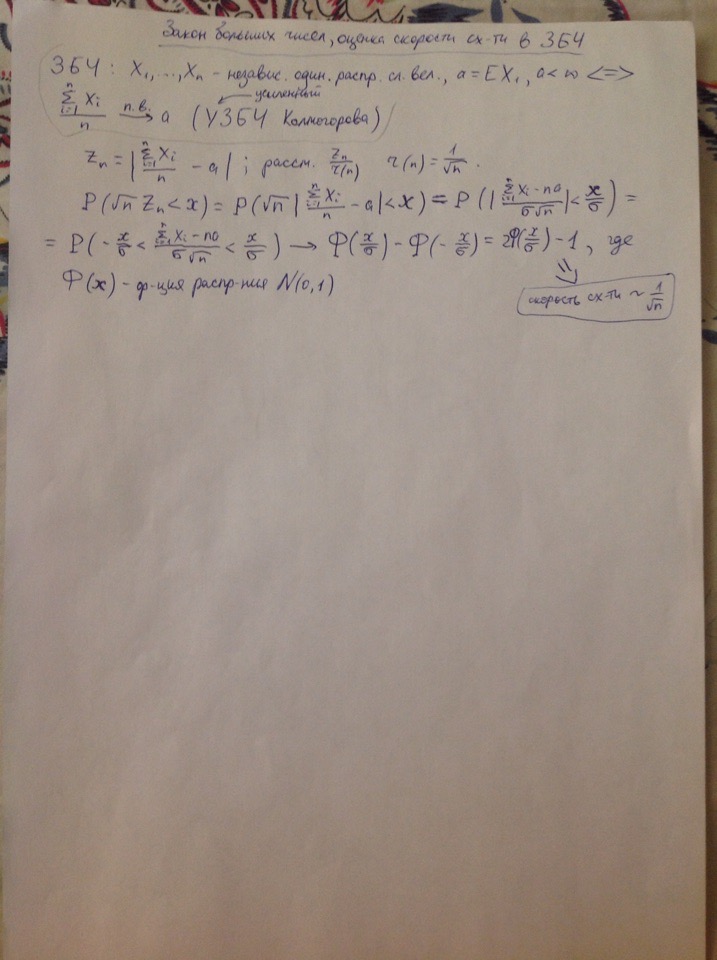 Закон больших чисел, оценка скорости сх-ти в ЗБЧ
ЗБЧ : X₁,...,Xₙ - независ. один. распр. сл. вел., a = EX₁, a < ∞ <=>
усиленный
∑ᵢ₌₁ⁿ Xᵢ / n →(п.в.) a (УЗБЧ Колмогорова)
Zₙ = | ∑ᵢ₌₁ⁿ Xᵢ / n - a | ; рассм. Zₙ / r(n) r(n) = 1/√n .
P(√n Zₙ < x) = P(√n | ∑ᵢ₌₁ⁿ Xᵢ / n - a | < x) = P( | (∑ᵢ₌₁ⁿ Xᵢ - na) / (σ√n) | < x/σ ) =
= P( - x/σ < (∑ᵢ₌₁ⁿ Xᵢ - na) / (σ√n) < x/σ ) → Φ(x/σ) - Φ(- x/σ) = 2Φ(x/σ) - 1 , где
Φ(x) - ф-ция распр-ния N(0,1)
⇓
скорость сх-ти ~ 1/√n